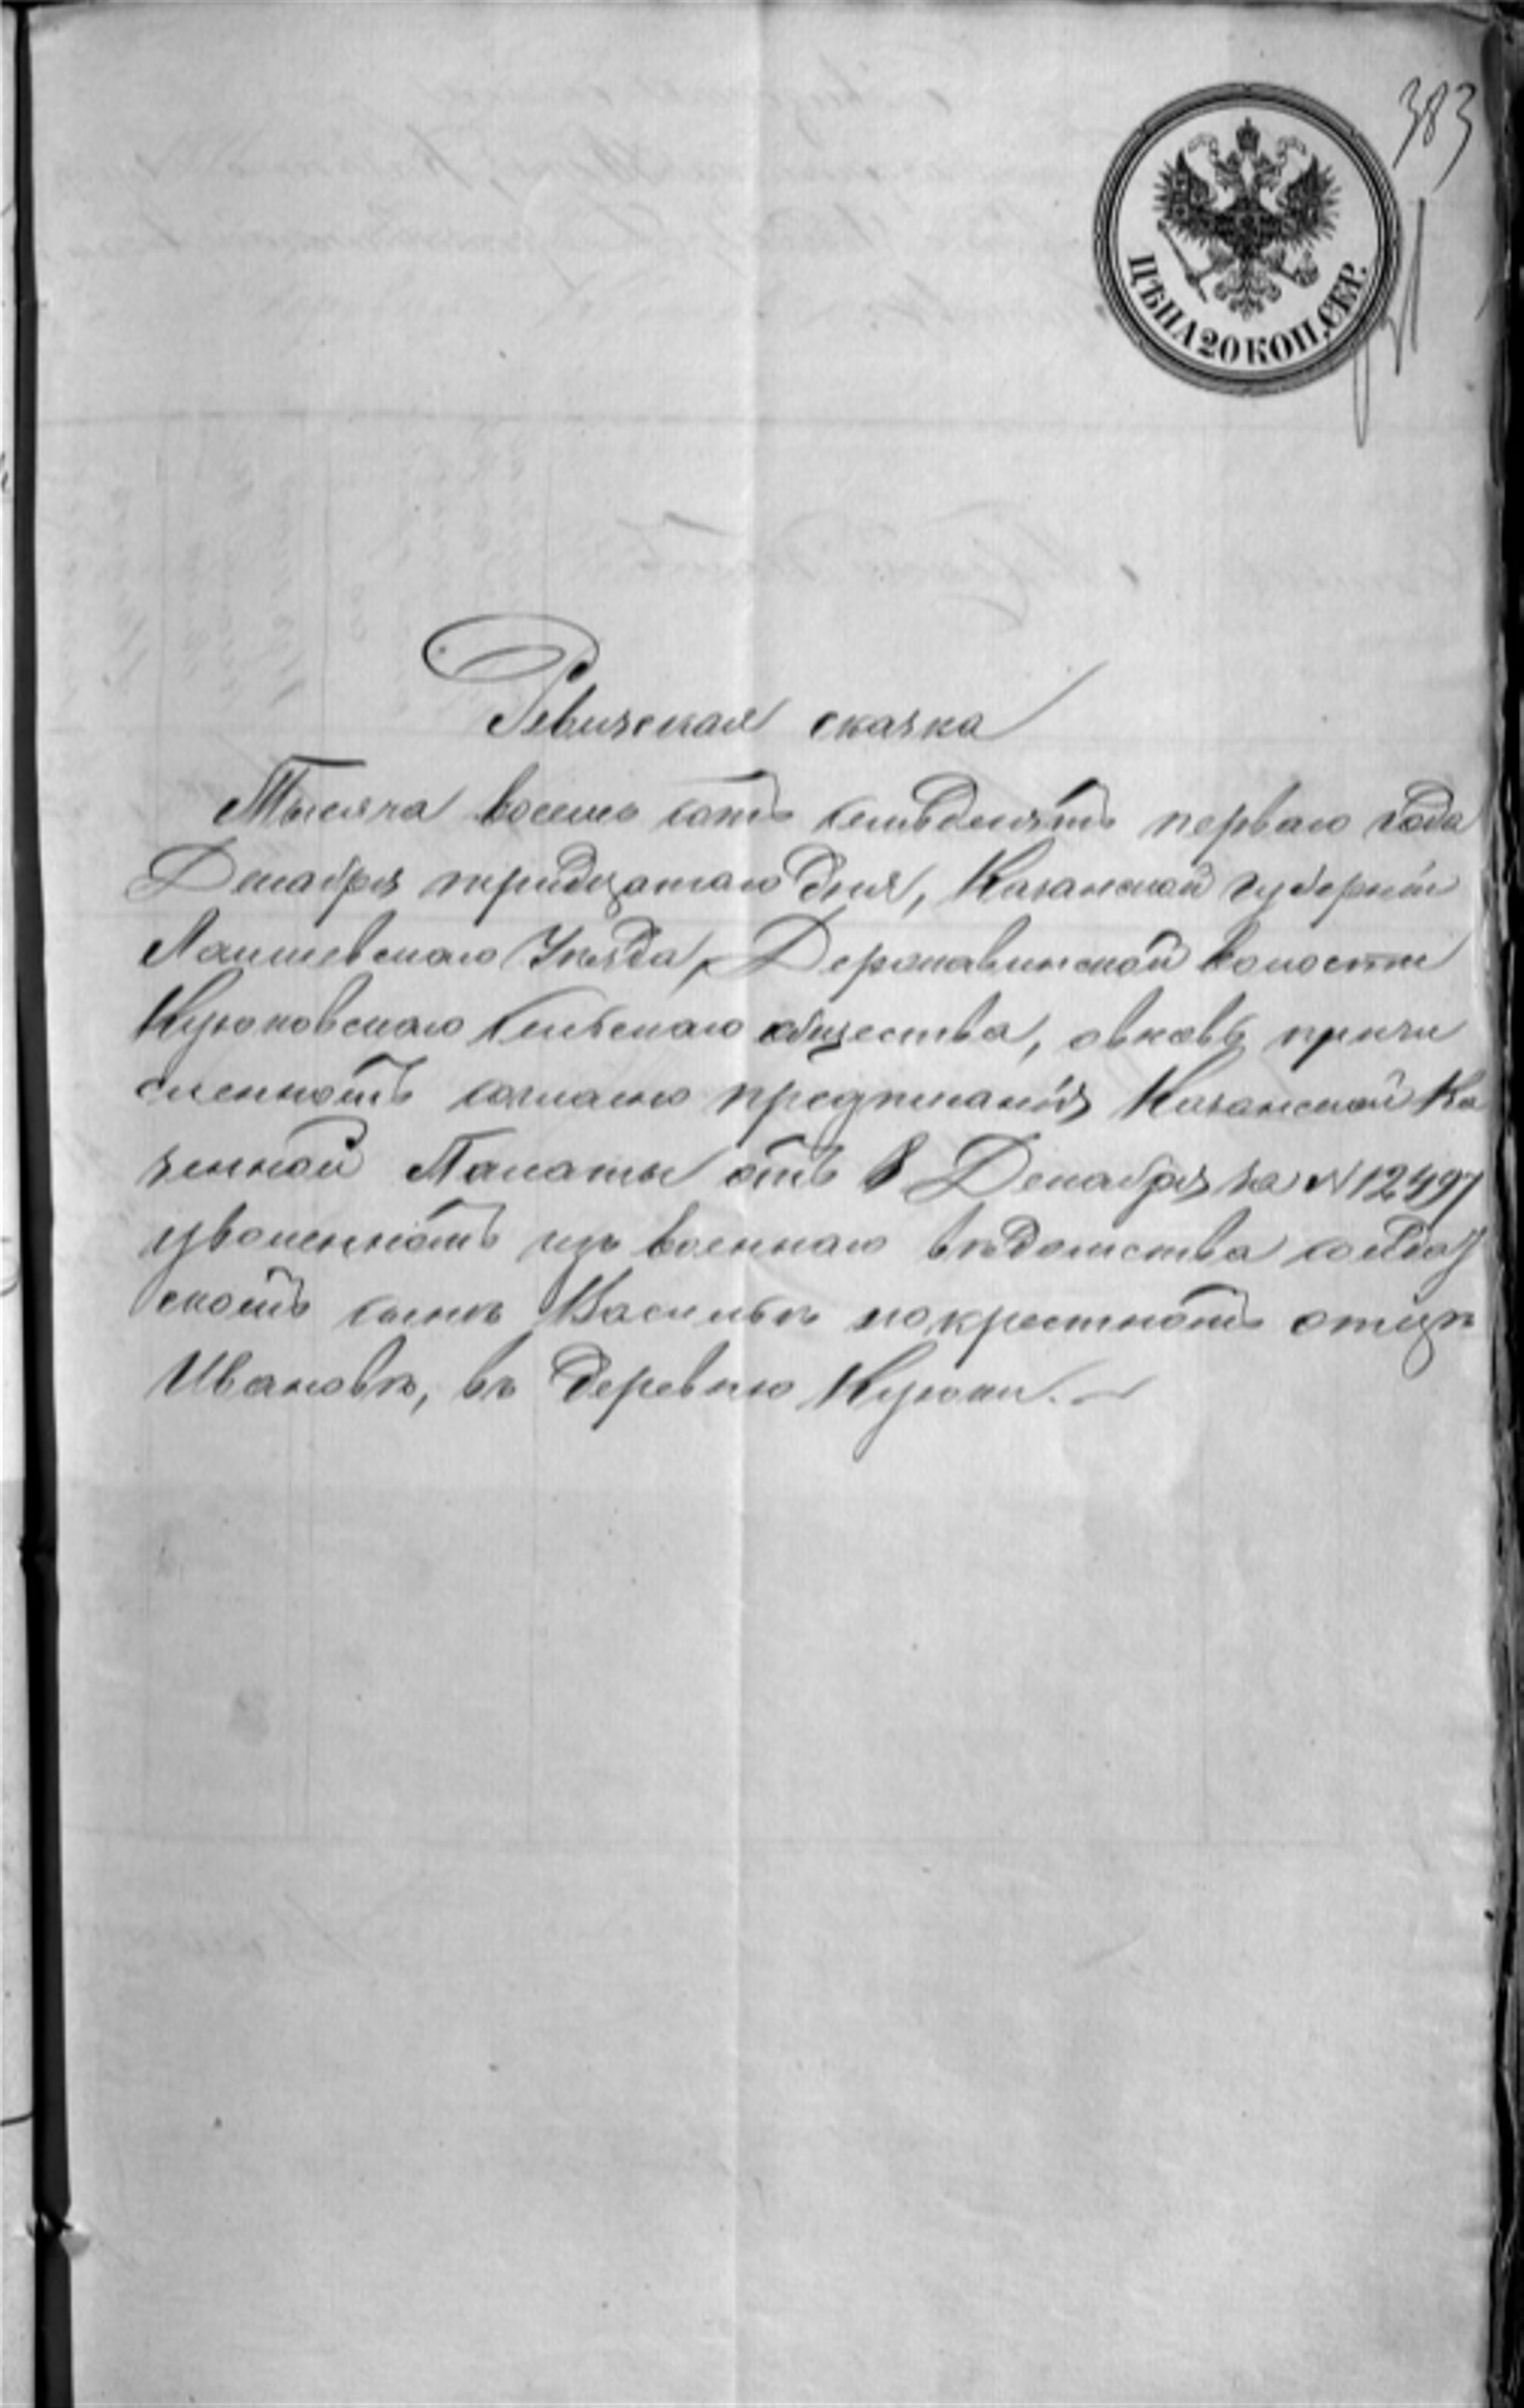 383
ЦѢНА 20 КОП. СЕР.
Ревизская сказка
Тысяча восемь сотъ семьдесятъ перваго года
Декабря тридцатаго дня, Казанской губерніи
Лаишевскаго Уѣзда, Державинской волости
Куюковскаго сельскаго общества, овновь причи
сленномъ согласно предписанія Казанской Ка
зенной Палаты отъ 8 Декабря за N 12497
уволенномъ изъ военнаго вѣдомства солдат
скомъ сынѣ Васильѣ по крестномъ отцѣ
Ивановѣ, въ деревню Куюки.